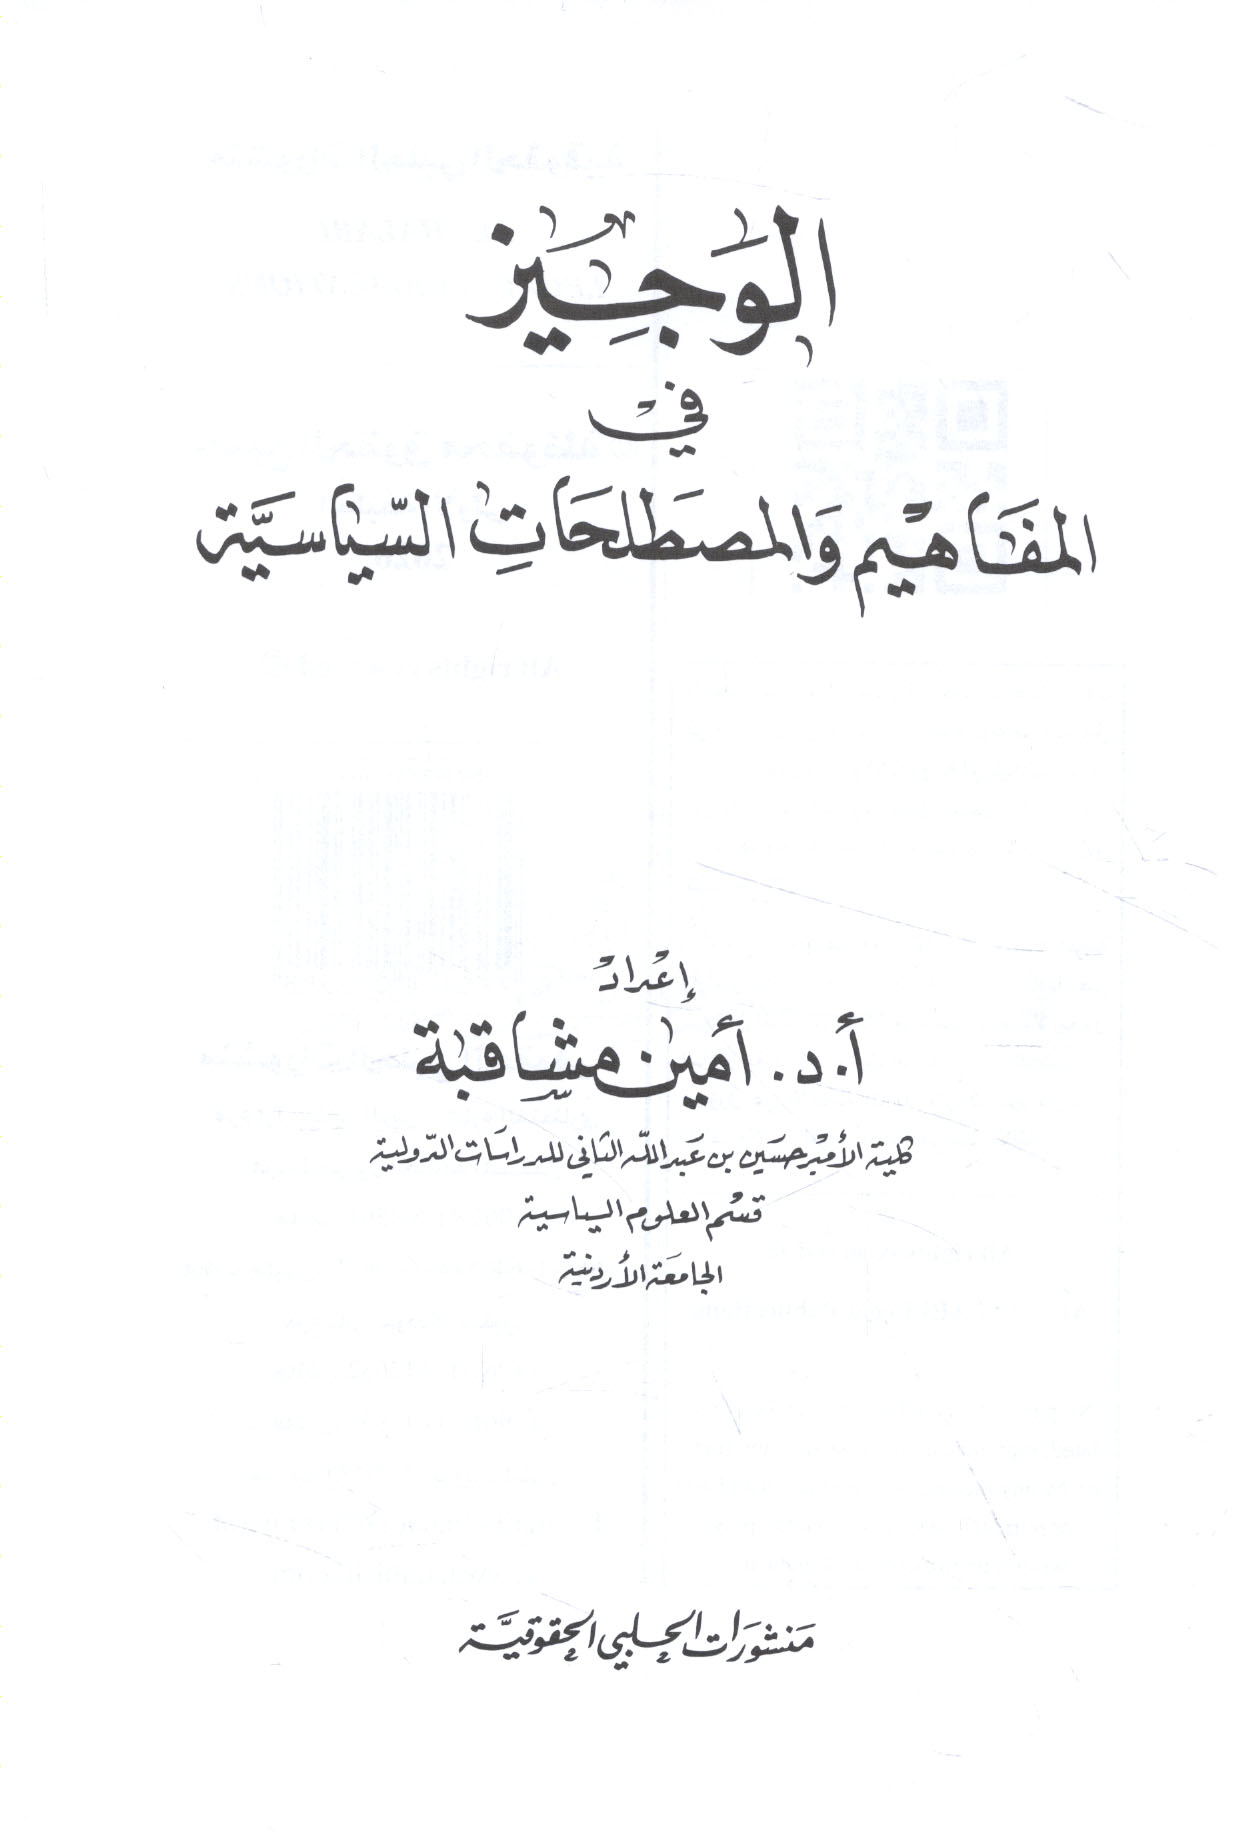 الوَجِيز
في
المفَاهيْم وَالمصطَلحَاتِ السّياسيَّة
إعْداد
أ.د. أمين مشاقبة
كلية الأميْر حسَين بن عَبدالله الثاني للدراسَات الدّولية
قسْم العلوم السياسية
الجامعَة الأردنية
مَنشورَات الحلبي الحقوقيَّة